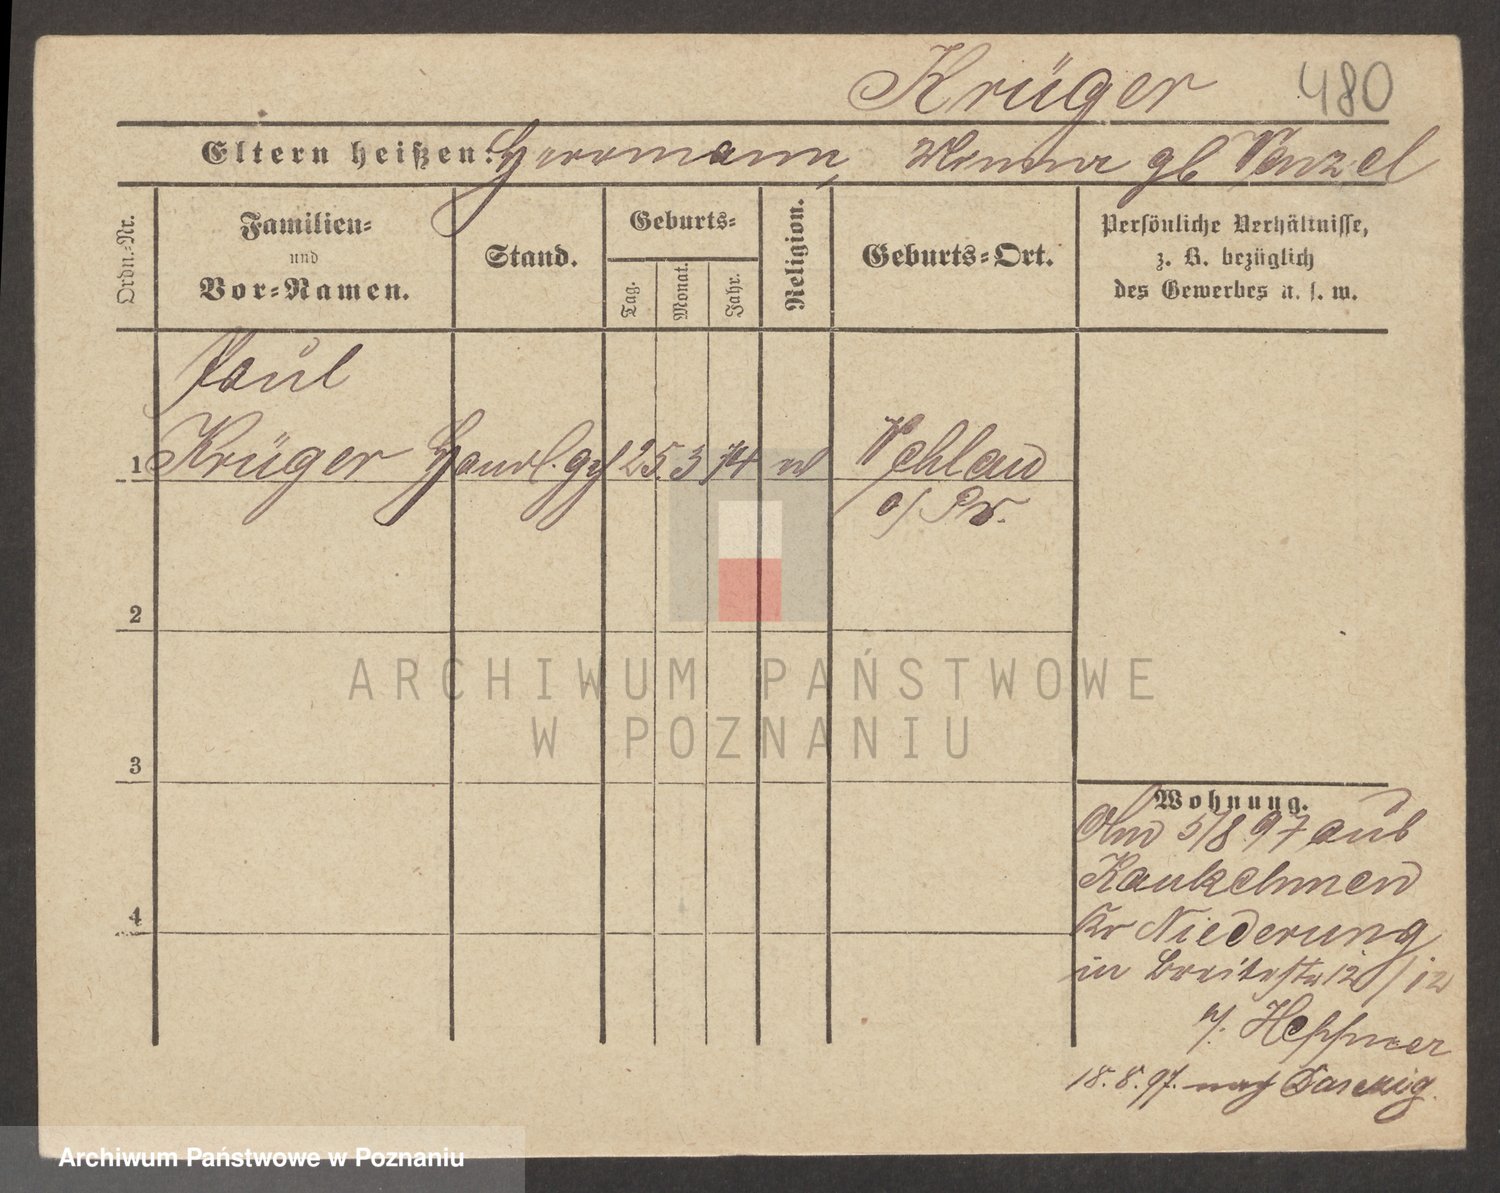 Krüger 480
Eltern heißen: Herrmann, Minna gb Wenzel
Ordn.-Nr.
Familien-
und
Vor-Namen.
Stand.
Geburts-
Tag.
Monat.
Jahr.
Religion.
Geburts-Ort.
Persönliche Verhältnisse,
z. B. bezüglich
des Gewerbes u. s. w.
Paul
1 Krüger Handl. 25. 3 74 Wehlau
o/Pr.
2
3
4
Wohnung.
5/8 97 aus
Kaukehmen
Kr Niederung
in Breitestr 12 / 12
Heppner
18. 8. 97. nach Danzig.
ARCHIWUM PAŃSTWOWE
W POZNANIU
Archiwum Państwowe w Poznaniu